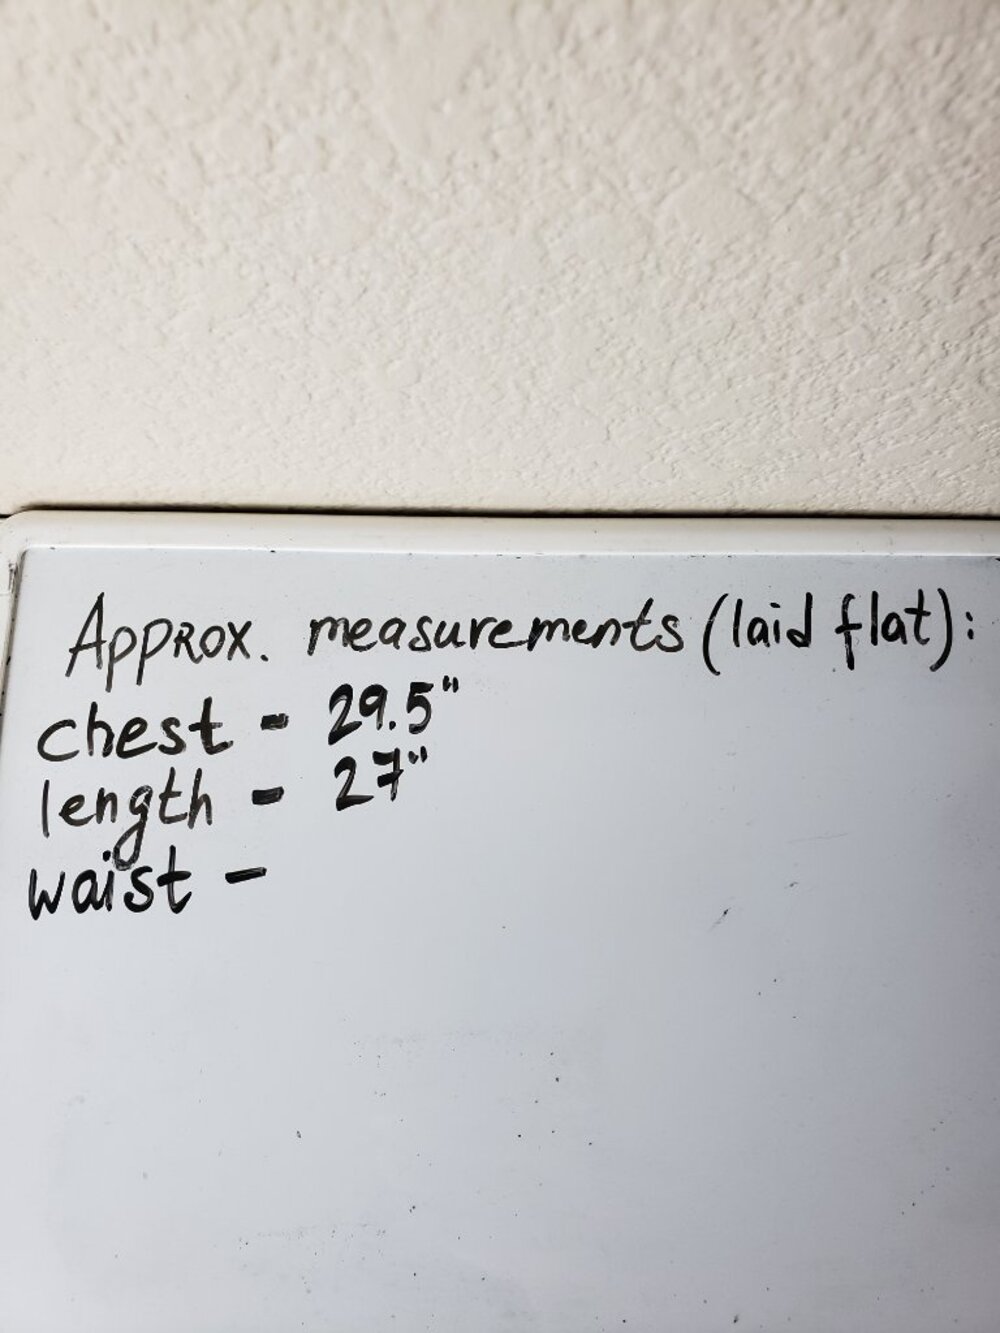 Approx. measurements (laid flat):
chest - 29.5"
length - 27"
waist -